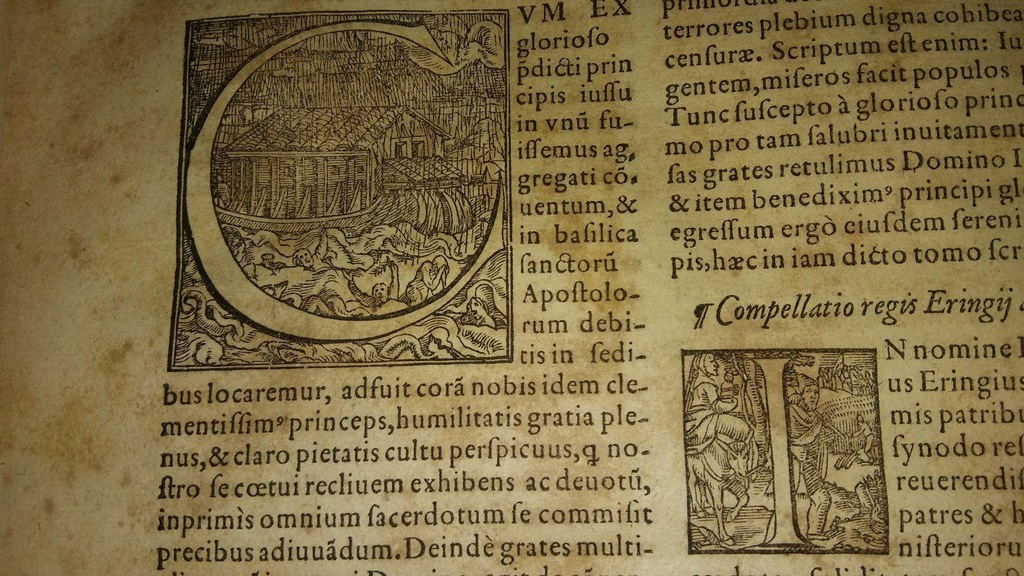 CVM EX
glorioſo
p̃dicti prin
cipis iuſſu
in vnũ fu-
iſſemus ag,
gregati cõ,
uentum, &
in baſilica
ſanctorũ
Apoſtolo-
rum debi-
tis in ſedi-
bus locaremur, adfuit corã nobis idem cle-
mentiſſimꝰ princeps, humilitatis gratia ple-
nus, & claro pietatis cultu perſpicuus, q̃ no-
ſtro ſe cœtui recliuem exhibens ac deuotũ,
inprimìs omnium ſacerdotum ſe commiſit
precibus adiuuãdum. Deindè grates multi-
terrores plebium digna cohibea
cenſuræ. Scriptum eſt enim: Iu
gentem, miſeros facit populos
Tunc ſuſcepto à glorioſo princ
mo pro tam ſalubri inuitament
ſas grates retulimus Domino I
& item benediximꝰ principi gl
egreſſum ergò eiuſdem ſereni
pis, hæc in iam dicto tomo ſcr
¶ Compellatio regis Eringij
IN nomine
us Eringius
mis patribu
ſynodo reſ
reuerendiſ
patres & h
niſterioru